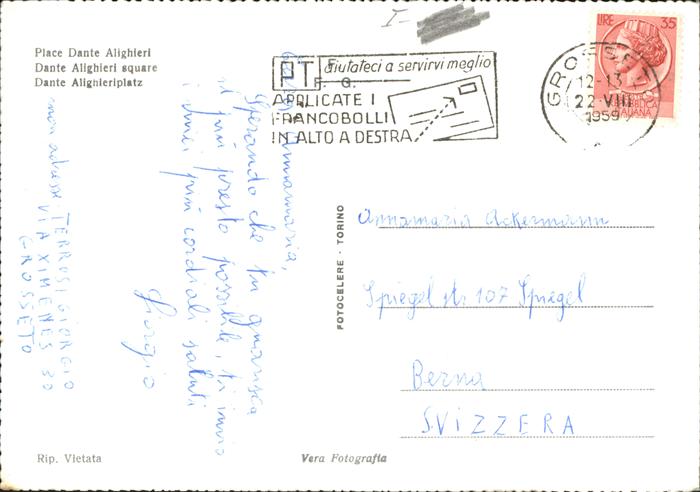 I-
Place Dante Alighieri
Dante Alighieri square
Dante Alighieriplatz
PT
aiutateci a servirvi meglio
F. G.
APPLICATE I
FRANCOBOLLI
IN ALTO A DESTRA
GROSSETO
12-13
22·VIII
1959
LIRE 35
REPUBBLICA
ITALIANA
Cara Annamaria,
Sperando che tu guarisca
il più presto possibile, ti invio
i miei più cordiali saluti
Giorgio
mon adresse: TERROSI GIORGIO
VIA XIMENES 30
GROSSETO
FOTOCELERE · TORINO
Annamaria Ackermann
Spiegel str. 107 Spiegel
Berna
SVIZZERA
Rip. Vietata
Vera Fotografia